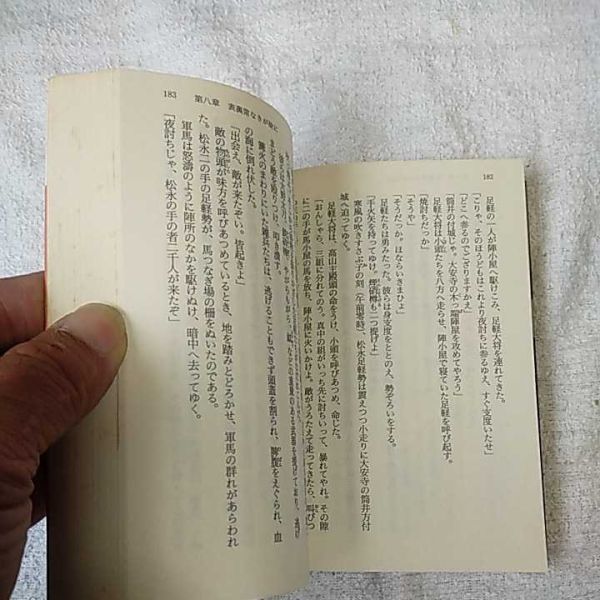 182
「足軽の一人が陣小屋へ駆けこみ、足軽大将を連れてきた。
「こりゃ、そのほうどもはこれより夜討ちに参るゆえ、すぐ支度いたせ」
「どこへ参るのでござりますかえ」
「筒井の付城じゃ。大安寺の木っ端陣屋を攻めてやろう」
「焼討ちだっか」
「そうや」
足軽大将は小頭たちを八方へ走らせ、陣小屋で寝ていた足軽を呼び起す。
「手火矢を持ってゆけ。煙硝樽も二つ提げよ」
「そうだっか。ほならいきまひょ」
足軽たちは勇みたった。彼らは身支度をととのえ、勢ぞろいをする。
寒風の吹きすさぶ子の刻(午前零時)、松永足軽勢は震えつつ小走りに大安寺の筒井方付
城へ迫ってゆく。
足軽大将は、高山主殿頭の命をうけ、小頭を呼びあつめ、命じた。
「おんしゃら、三組に分れてのう。真中の組がいっち先に討ちいって、暴れてやれ。その隙
に二の手が馬小屋の馬を放ち、陣小屋に火いかけよ。敵がうろたえて走ってきたら、
183 第八章 表裏常なきが故に
まどう敵を殴りつけ、叩き潰す。
篝火のまわりにいた雑兵たちは、逃げることもできず頭蓋を割られ、脾腹をえぐられ、血
の海に倒れ伏した。
「出会え、敵が来たぞい。皆起きよ」
敵の物頭が味方を呼びあつめているとき、地を踏みとどろかせ、軍馬の群れがあらわれ
た。松永二の手の足軽勢が、馬つなぎ場の柵をぬいたのである。
軍馬は怒濤のように陣所のなかを駆けぬけ、暗中へ去ってゆく。
「夜討ちじゃ、松永の手の者二千人が来たぞ」